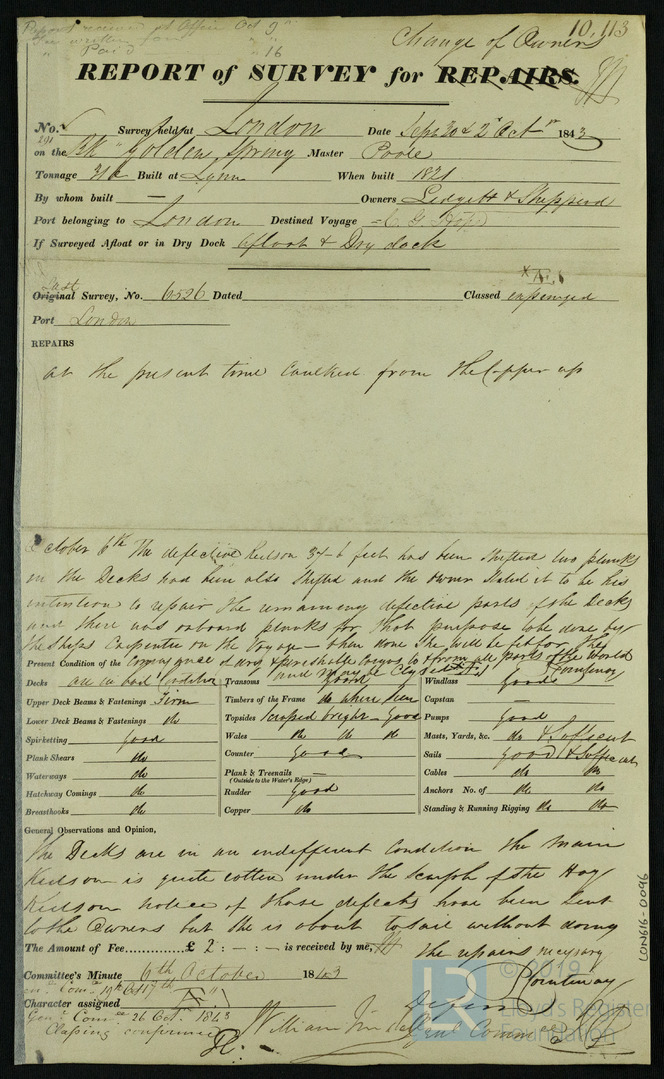 Report received at Office Oct 9th
" Paid " 16
Change of Owners
10,113
REPORT of SURVEY for REPAIRS.
No. Survey held at London Date Sept 30 & 2d Octr 1843
291
on the Bk "Golden Spring Master Poole
Tonnage Built at Lynn When built 1821
By whom built — Owners Ledgett & Shepperd
Port belonging to London Destined Voyage C. G. Hope
If Surveyed Afloat or in Dry Dock afloat & Dry dock
Last
Original Survey, No. 6526 Dated Classed expunged
Port London
REPAIRS
at the present time caulked from the Copper up
October 6th The defective Keelson 37-6 feet has been shifted two planks
in the Decks had been also shifted and the owner stated it to be his
intention to repair the remaining defective parts of the Decks
and there was onboard planks for that purpose to be done by
the Ships Carpenter on the Voyage — when done she will be fit for the
Present Condition of the Conveyance of dry & perishable Cargos to & from all parts of the World
Decks are in bad condition
Upper Deck Beams & Fastenings Firm
Lower Deck Beams & Fastenings do
Spirketting good
Plank Shears do
Waterways do
Hatchway Comings do
Breasthooks do
Transoms good
Timbers of the Frame do where seen
Topsides scraped bright - good
Wales do do do
Counter good
Plank & Treenails —
(Outside to the Water's Edge)
Rudder good
Copper do
Windlass good
Capstan —
Pumps good
Masts, Yards, &c. do & Sufficent
Sails good & Sufficent
Cables do do
Anchors No. of do do
Standing & Running Rigging do do
General Observations and Opinion,
The Decks are in an indifferent condition the Main
Keelson is quite rotten under the Scarph of the Hog
Keelson notice of those defects have been sent
to the Owners but she is about to sail without doing
the repairs necessary
The Amount of Fee............£ 2 : — : — is received by me,
Pountenay
Committee's Minute 6th October 1843
Character assigned
Genl Comee 26 Octr 1843
Classing confirmed
William
Genl Commee
LON616-0096
© 2019
LR
Lloyd's Register
Foundation